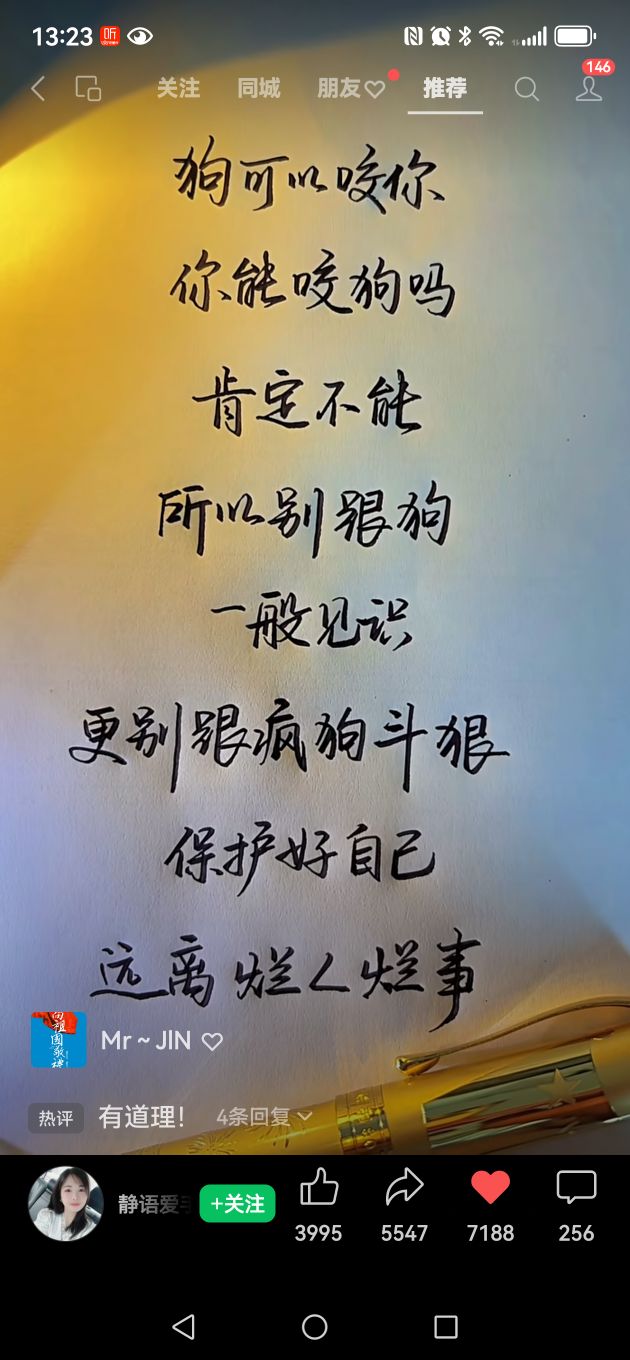 13:23
146
关注 同城 朋友 推荐
狗可以咬你
你能咬狗吗
肯定不能
所以别跟狗
一般见识
更别跟疯狗斗狠
保护好自己
远离烂人烂事
向祖国敬礼
Mr~JIN
热评 有道理! 4条回复
静语爱手
+关注
3995 5547 7188 256